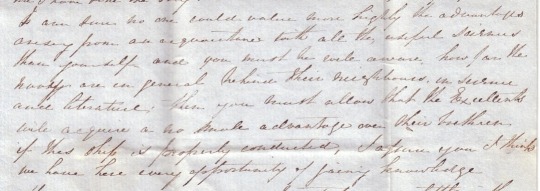 I am sure no one could value more highly the advantages
arising from an acquaintance with all the useful Sciences
than yourself and you must be well aware how far the
are in general behind their neighbours, in science
and literature; then you must allow that the Excellents
will acquire a no small advantage over their brethren
if this ship is properly conducted, I assure you I think
we have here every opportunity of gaining knowledge